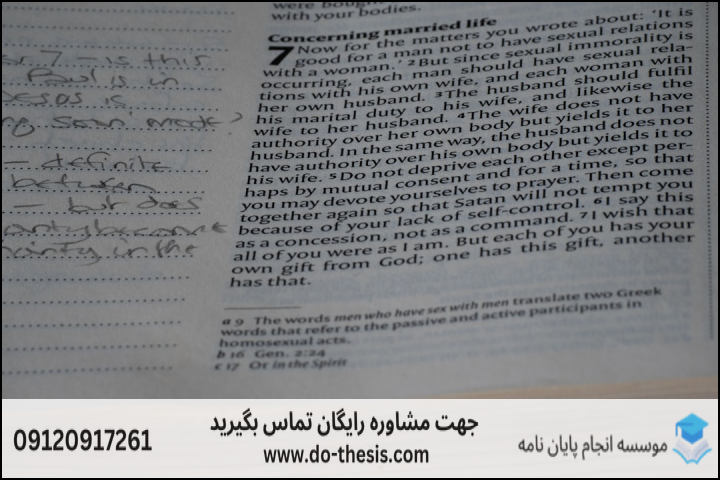 were bought
with your bodies.
Concerning married life
7 Now for the matters you wrote about: 'It is
good for a man not to have sexual relations
with a woman.' 2But since sexual immorality is
occurring, each man should have sexual rela-
tions with his own wife, and each woman with
her own husband. 3The husband should fulfil
his marital duty to his wife, and likewise the
wife to her husband. 4The wife does not have
authority over her own body but yields it to her
husband. In the same way, the husband does not
have authority over his own body but yields it to
his wife. 5Do not deprive each other except per-
haps by mutual consent and for a time, so that
you may devote yourselves to prayer. Then come
together again so that Satan will not tempt you
because of your lack of self-control. 6I say this
as a concession, not as a command. 7I wish that
all of you were as I am. But each of you has your
own gift from God; one has this gift, another
has that.
a 9 The words men who have sex with men translate two Greek
words that refer to the passive and active participants in
homosexual acts.
b 16 Gen. 2:24
c 17 Or in the Spirit
7 - is this
Paul is in
is
made?
- definite
between
- but does
in the
جهت مشاوره رایگان تماس بگیرید
www.do-thesis.com
09120917261
موسسه انجام پایان نامه